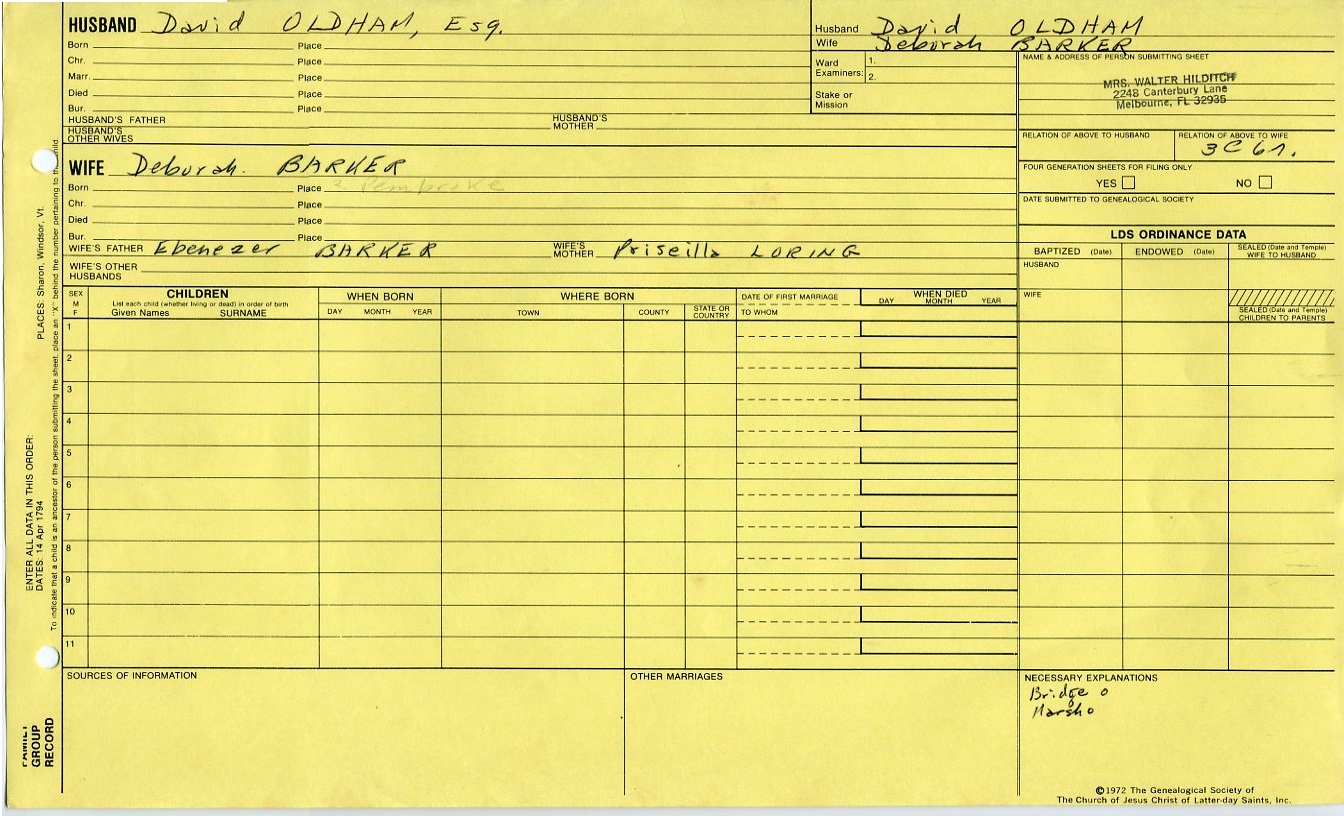 HUSBAND David OLDHAM, Esq.
Born Place
Chr. Place
Marr. Place
Died Place
Bur. Place
HUSBAND'S FATHER HUSBAND'S MOTHER
HUSBAND'S OTHER WIVES
Husband David OLDHAM
Wife Deborah BARKER
Ward Examiners: 1.
2.
Stake or Mission
NAME & ADDRESS OF PERSON SUBMITTING SHEET
MRS. WALTER HILDITCH
2248 Canterbury Lane
Melbourne, FL 32935
RELATION OF ABOVE TO HUSBAND RELATION OF ABOVE TO WIFE
3C 6
FOUR GENERATION SHEETS FOR FILING ONLY
YES NO
DATE SUBMITTED TO GENEALOGICAL SOCIETY
WIFE Deborah. BARKER
Born Place Pembroke
Chr. Place
Died Place
Bur. Place
WIFE'S FATHER Ebenezer BARKER WIFE'S MOTHER Priscilla LORING
WIFE'S OTHER HUSBANDS
LDS ORDINANCE DATA
BAPTIZED (Date) ENDOWED (Date) SEALED (Date and Temple) WIFE TO HUSBAND
HUSBAND
WIFE
SEALED (Date and Temple) CHILDREN TO PARENTS
SEX M F
CHILDREN
List each child (whether living or dead) in order of birth
Given Names SURNAME
WHEN BORN
DAY MONTH YEAR
WHERE BORN
TOWN COUNTY STATE OR COUNTRY
DATE OF FIRST MARRIAGE
TO WHOM
WHEN DIED
DAY MONTH YEAR
1
2
3
4
5
6
7
8
9
10
11
SOURCES OF INFORMATION
OTHER MARRIAGES
NECESSARY EXPLANATIONS
Bridge o
Marsh o
©1972 The Genealogical Society of
The Church of Jesus Christ of Latter-day Saints, Inc.
FAMILY GROUP RECORD
ENTER ALL DATA IN THIS ORDER:
DATES: 14 Apr 1794
PLACES: Sharon, Windsor, Vt.
To indicate that a child is an ancestor of the person submitting the sheet, place an "X" behind the number pertaining to that child.